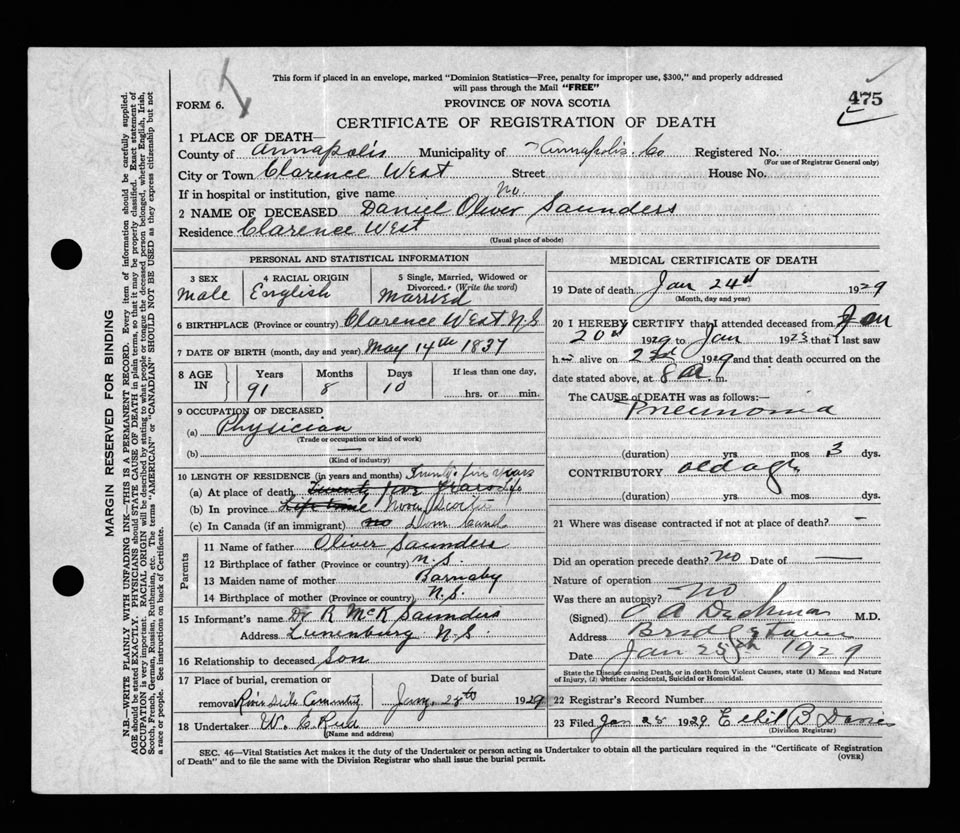 This form if placed in an envelope, marked "Dominion Statistics—Free, penalty for improper use, $300," and properly addressed
will pass through the Mail "FREE"
FORM 6.
PROVINCE OF NOVA SCOTIA
475
CERTIFICATE OF REGISTRATION OF DEATH
1 PLACE OF DEATH—
County of Annapolis Municipality of Annapolis Co Registered No.
(For use of Registrar General only)
City or Town Clarence West Street House No.
If in hospital or institution, give name no.
2 NAME OF DECEASED Daniel Oliver Saunders
Residence Clarence West
(Usual place of abode)
PERSONAL AND STATISTICAL INFORMATION
3 SEX
Male
4 RACIAL ORIGIN
English
5 Single, Married, Widowed or
Divorced. (Write the word)
Married
6 BIRTHPLACE (Province or country) Clarence West N.S
7 DATE OF BIRTH (month, day and year) May 14th 1837
8 AGE IN
Years
91
Months
8
Days
10
If less than one day,
hrs. or min.
9 OCCUPATION OF DECEASED
(a) Physician
(Trade or occupation or kind of work)
(b) —
(Kind of industry)
10 LENGTH OF RESIDENCE (in years and months) Twenty-five years
(a) At place of death Twenty five years
(b) In province Life time Nova Scotia
(c) In Canada (if an immigrant) no
Parents
11 Name of father Oliver Saunders
12 Birthplace of father (Province or country) N.S.
13 Maiden name of mother Barnaby
14 Birthplace of mother (Province or country) N.S.
15 Informant's name Dr R McK Saunders
Address Lunenburg N.S.
16 Relationship to deceased Son
17 Place of burial, cremation or
removal Riverside
Date of burial
1929
18 Undertaker W. C.
(Name and address)
MEDICAL CERTIFICATE OF DEATH
19 Date of death Jan 24th 1929
(Month, day and year)
20 I HEREBY CERTIFY that I attended deceased from Jan
20th 1929 to Jan 1923 that I last saw
h alive on 23rd 1929 and that death occurred on the
date stated above, at 8 a. m.
The CAUSE of DEATH was as follows:—
Pneumonia
(duration) yrs. mos 3 dys.
CONTRIBUTORY old age
(duration) yrs. mos. dys.
21 Where was disease contracted if not at place of death? —
Did an operation precede death? No Date of —
Nature of operation
Was there an autopsy? No
(Signed) M.D.
Address Bridgetown
Date Jan 25th 1929
State the Disease causing Death, or in death from Violent Causes, state (1) Means and Nature
of Injury, (2) Whether Accidental, Suicidal or Homicidal.
22 Registrar's Record Number
23 Filed Jan 28 1929 Ethel B
(Division Registrar)
SEC. 46—Vital Statistics Act makes it the duty of the Undertaker or person acting as Undertaker to obtain all the particulars required in the "Certificate of Registration
of Death" and to file the same with the Division Registrar who shall issue the burial permit.
(OVER)
MARGIN RESERVED FOR BINDING
N.B—WRITE PLAINLY WITH UNFADING INK—THIS IS A PERMANENT RECORD. Every item of information should be carefully supplied.
AGE should be stated EXACTLY. PHYSICIANS should STATE CAUSE OF DEATH in plain terms, so that it may be properly classified. Exact statement of
OCCUPATION is very important. RACIAL ORIGIN will be described by stating to what people or tongue the deceased person belonged, whether English, Irish,
Scotch, French, German, Russian, Ruthenian, etc. The terms "AMERICAN" or "CANADIAN" SHOULD NOT BE USED as they express citizenship but not
a race or people. See instructions on back of Certificate.